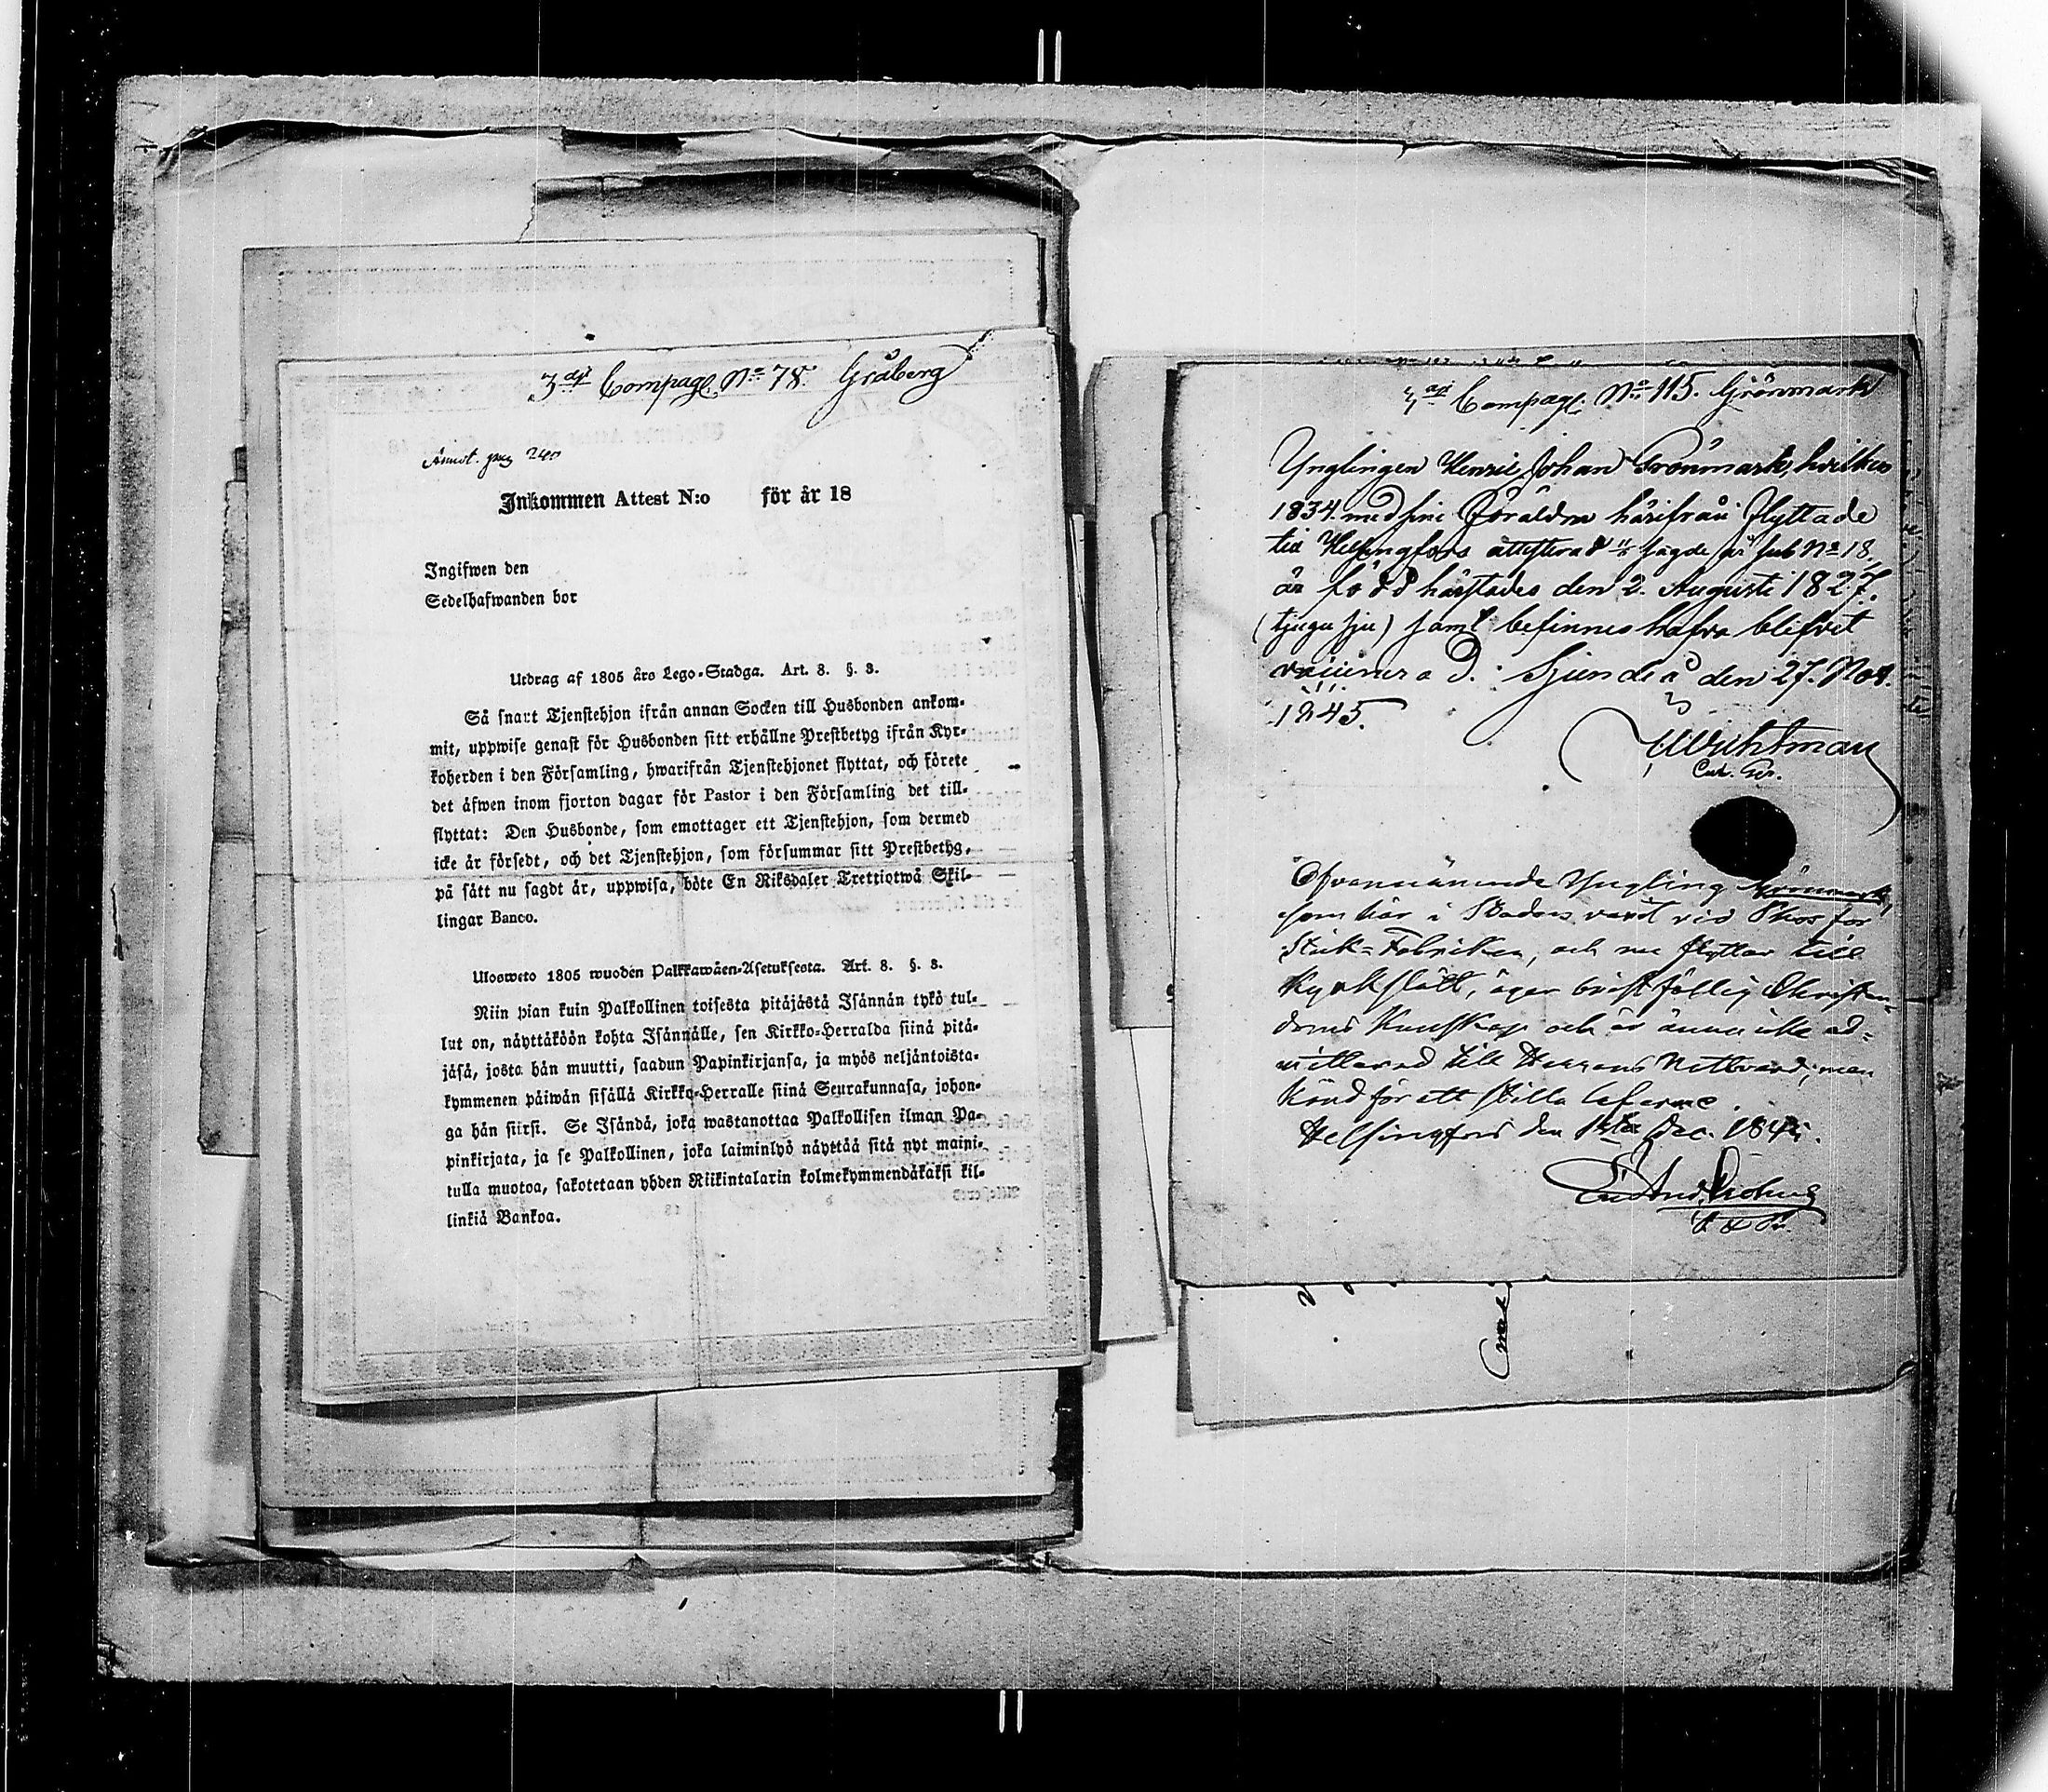 3dje Compagl. No 78. Gråberg
Annot. pag 240
Inkommen Attest N:o för år 18
Ingifwen den
Sedelhafwanden bor
Utdrag af 1805 års Lego-Stadga. Art. 8. §. 3.
Så snart Tjenstehjon ifrån annan Socken till Husbonden ankom-
mit, uppwise genast för Husbonden sitt erhållne Prestbetyg ifrån Kyr-
koherden i den Församling, hwarifrån Tjenstehjonet flyttat, och förete
det äfwen inom fjorton dagar för Pastor i den Församling det till-
flyttat: Den Husbonde, som emottager ett Tjenstehjon, som dermed
icke är försedt, och det Tjenstehjon, som försummar sitt Prestbetyg,
på sätt nu sagdt är, uppwisa, böte En Riksdaler Trettiotwå Skil-
lingar Banco.
Ulosweto 1805 wuoden Palkkawäen-Asetuksesta. Art. 8. §. 3.
Niin pian kuin Palkollinen toisesta pitäjästä Isännän tykö tul-
lut on, näyttäköön kohta Isännälle, sen Kirkko-Herralda siinä pitä-
jäsä, josta hän muutti, saadun Papinkirjansa, ja myös neljäntoista-
kymmenen päiwän sisällä Kirkko-Herralle siinä Seurakunnasa, johon-
ga hän siirsi. Se Isändä, joka wastanottaa Palkollisen ilman Pa-
pinkirjata, ja se Palkollinen, joka laiminlyö näyttää sitä nyt maini-
tulla muotoa, sakotetaan yhden Riikintalarin kolmekymmendäkaksi kil-
linkiä Bankoa.
3dje Compagl. No 115. Grönmark
Ynglingen Henric Johan Grönmark, hvilken
1834 med sine Föräldrar härifrån flyttade
till Helsingfors attesterad sagde år sub No 18,
är född härstädes den 2. Augusti 1827.
(tjugu sju) samt befinnes hafva blifvit
vaccinerad. Sjundeå den 27. Nov.
1845.
Ofvannämnde Yngling Grönmark,
som här i Staden varit vid Phosfor
Stick-Fabriken, och nu flyttar till
Kyrkslätt, äger bristfällig Christen-
doms Kunskap och är ännu icke ad-
mitterad till Herrans Nattvard; men
känd för ett stilla lefverne.
Helsingfors den Dec. 1845.